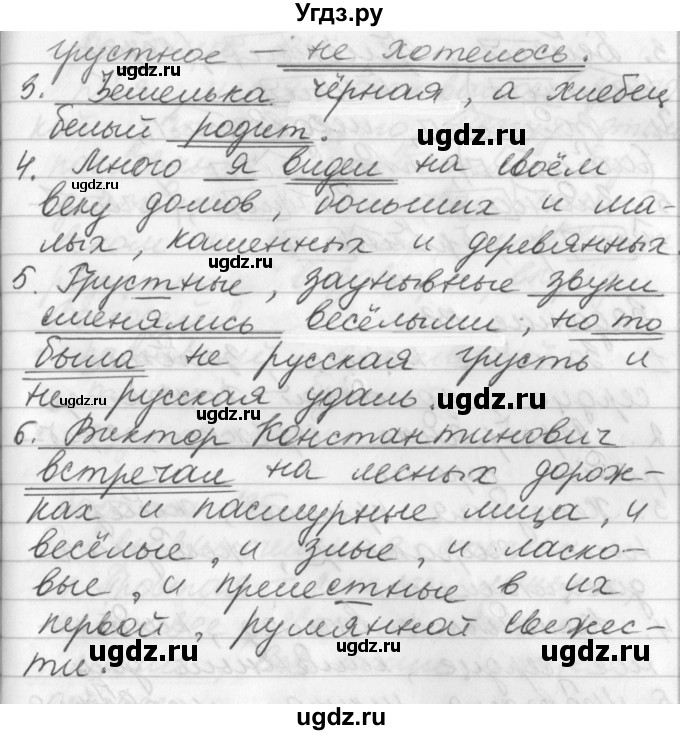 Угдз.ру
грустное — не хотелось.
3. Земелька чёрная, а хлебец
белый родит.
4. Много я видел на своём
веку домов, больших и ма-
лых, каменных и деревянных.
5. Грустные, заунывные звуки
сменялись весёлыми, но то
была не русская грусть и
не русская удаль.
6. Виктор Константинович
встречал на лесных дорож-
ках и пасмурные лица, и
весёлые, и злые, и ласко-
вые, и прелестные в их
первой, румянной свежес-
ти.
ugdz.ru
ugdz.ru
ugdz.ru
ugdz.ru
ugdz.ru
ugdz.ru
ugdz.ru
ugdz.ru
ugdz.ru
ugdz.ru
ugdz.ru
ugdz.ru
ugdz.ru
ugdz.ru